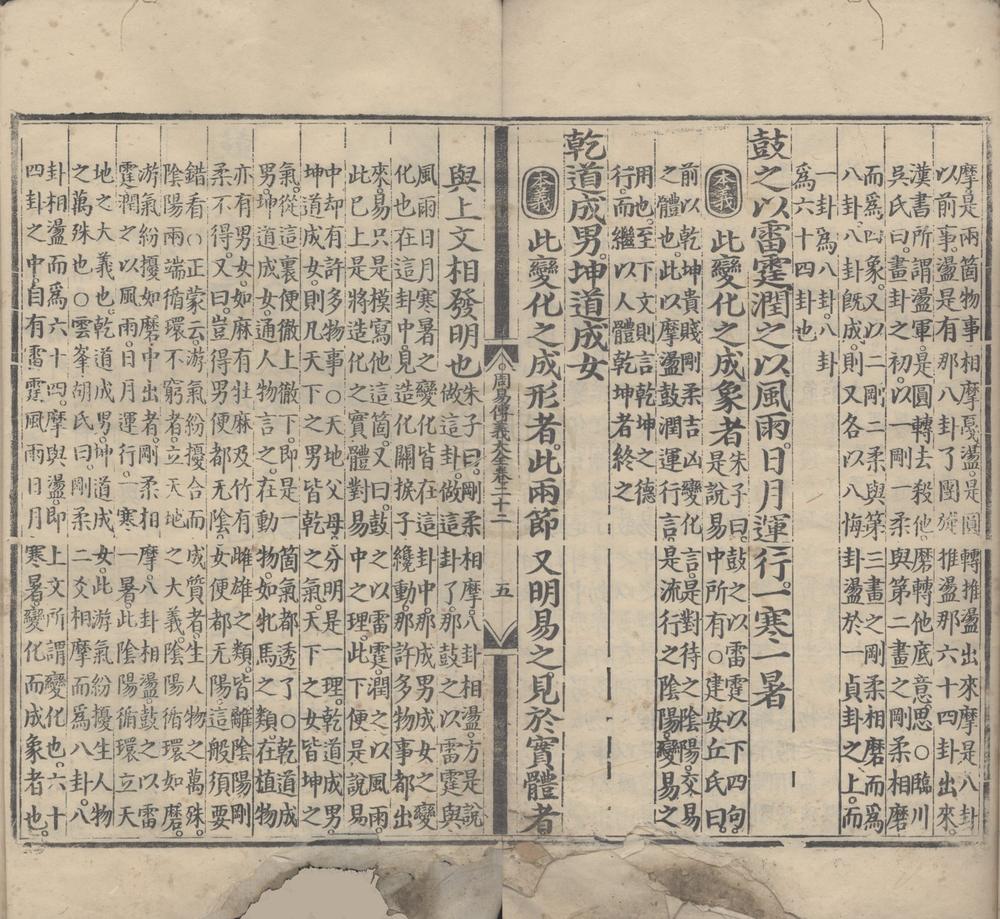 摩是兩箇物事相摩戞盪是圓轉推盪出來摩是八卦
以前事盪是有那八卦了團旋推盪那六十四卦出來
漢書所謂盪軍是圓轉去殺他磨轉他底意思○臨川
吳氏曰畫卦之初以一剛一柔與第二畫之剛柔相磨
而爲四象又以二剛二柔與第三畫之剛柔相磨而爲
八卦八卦旣成則又各以八悔卦盪於一貞卦之上而
一卦爲八卦八卦
爲六十四卦也
鼓之以雷霆潤之以風雨日月運行一寒一暑
本義
此變化之成象者
朱子曰鼓之以雷霆以下四句
是說易中所有○建安丘氏曰
前以乾坤貴賤剛柔吉凶變化言是對待之陰陽交易
之體也此以摩盪鼓潤運行言是流行之陰陽變易之
用也至下文則言乾坤之德
行而繼以人體乾坤者終之
乾道成男坤道成女
本義
此變化之成形者此兩節又明易之見於實體者
周易傳義大全卷二十二 五
與上文相發明也
朱子曰剛柔相摩八卦相盪方是說
做這卦做這卦了那鼓之以雷霆與
風雨日月寒暑之變化皆在這卦中那成男成女之變
化也在這卦中見造化關捩子纔動那許多物事都出
來易只是模寫他這箇又曰鼓之以雷霆潤之以風雨
此已上是將造化之實體對易中之理此下便是說易
中却有許多物事○天地父母分明是一理乾道成男
坤道成女則凡天下之男皆乾之氣天下之女皆坤之
氣從這裏便徹上徹下即是一箇氣都透了○乾道成
男坤道成女通人物言之在動物如牝馬之類在植物
亦有男女如麻有牡麻及竹有雌雄之類皆離陰陽剛
柔不得又曰豈得男便都无陰女便都无陽這般須要
錯看○正蒙云游氣紛擾合而成質者生人物之萬殊
陰陽兩端循環不窮者立天地之大義陰陽循環如磨
游氣紛擾如磨中出者剛柔相摩八卦相盪鼓之以雷
霆潤之以風雨日月運行一寒一暑此陰陽循環立天
地之大義也乾道成男坤道成女此游氣紛擾生人物
之萬殊也○雲峯胡氏曰剛柔二爻相摩而爲八卦八
卦相盪而爲六十四摩與盪即上文所謂變化也六十
四卦之中自有雷霆風雨日月寒暑變化而成象者也